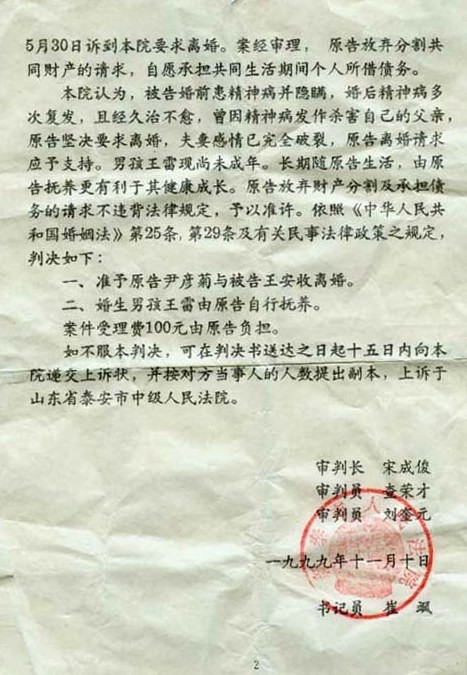 5月30日诉到本院要求离婚。案经审理，原告放弃分割共
同财产的请求，自愿承担共同生活期间个人所借债务。
本院认为，被告婚前患精神病并隐瞒，婚后精神病多
次复发，且经久治不愈，曾因精神病发作杀害自己的父亲，
原告坚决要求离婚，夫妻感情已完全破裂，原告离婚请求
应予支持。男孩王雷现尚未成年。长期随原告生活，由原
告抚养更有利于其健康成长。原告放弃财产分割及承担债
务的请求不违背法律规定，予以准许。依照《中华人民共
和国婚姻法》第25条，第29条及有关民事法律政策之规定，
判决如下：
一、准予原告尹彦菊与被告王安收离婚。
二、婚生男孩王雷由原告自行抚养。
案件受理费100元由原告负担。
如不服本判决，可在判决书送达之日起十五日内向本
院递交上诉状，并按对方当事人的人数提出副本，上诉于
山东省泰安市中级人民法院。
审判长 宋成俊
审判员 查荣才
审判员 刘奎元
一九九九年十一月十日
书记员 崔飒
2